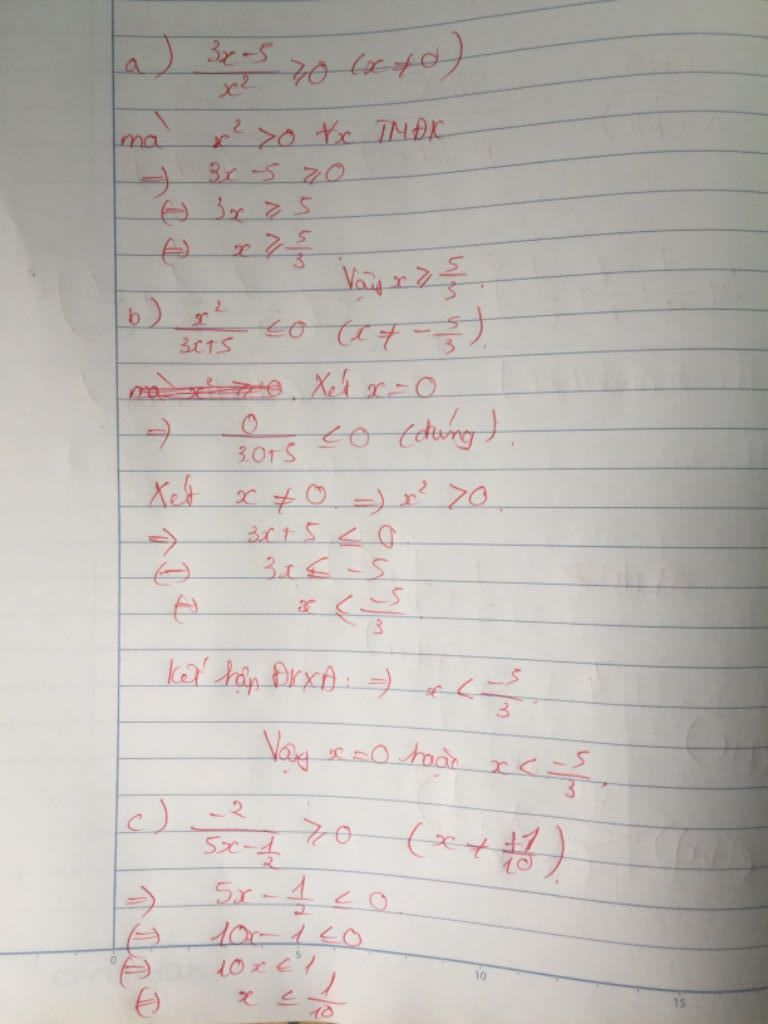 a) \frac{3x-5}{x^2} ⩾ 0 (x ≠ 0)
mà x² > 0 ∀x TMĐK
=> 3x - 5 ⩾ 0
<=> 3x ⩾ 5
<=> x ⩾ \frac{5}{3}
Vậy x ⩾ \frac{5}{3}.
b) \frac{x^2}{3x+5} ≤ 0 (x ≠ -\frac{5}{3}).
mà x² ⩾ 0. Xét x = 0
=> \frac{0}{3.0+5} ≤ 0 (đúng).
Xét x ≠ 0 => x² > 0.
=> 3x + 5 ≤ 0.
<=> 3x ≤ -5
<=> x ≤ \frac{-5}{3}.
Kết hợp ĐKXĐ: => x < \frac{-5}{3}.
Vậy x = 0 hoặc x < \frac{-5}{3}.
c) \frac{-2}{5x-\frac{1}{2}} ⩾ 0 (x ≠ \frac{+1}{10}).
=> 5x - \frac{1}{2} ≤ 0.
<=> 10x - 1 ≤ 0
<=> 10x ≤ 1
<=> x ≤ \frac{1}{10}
0 5 10 15